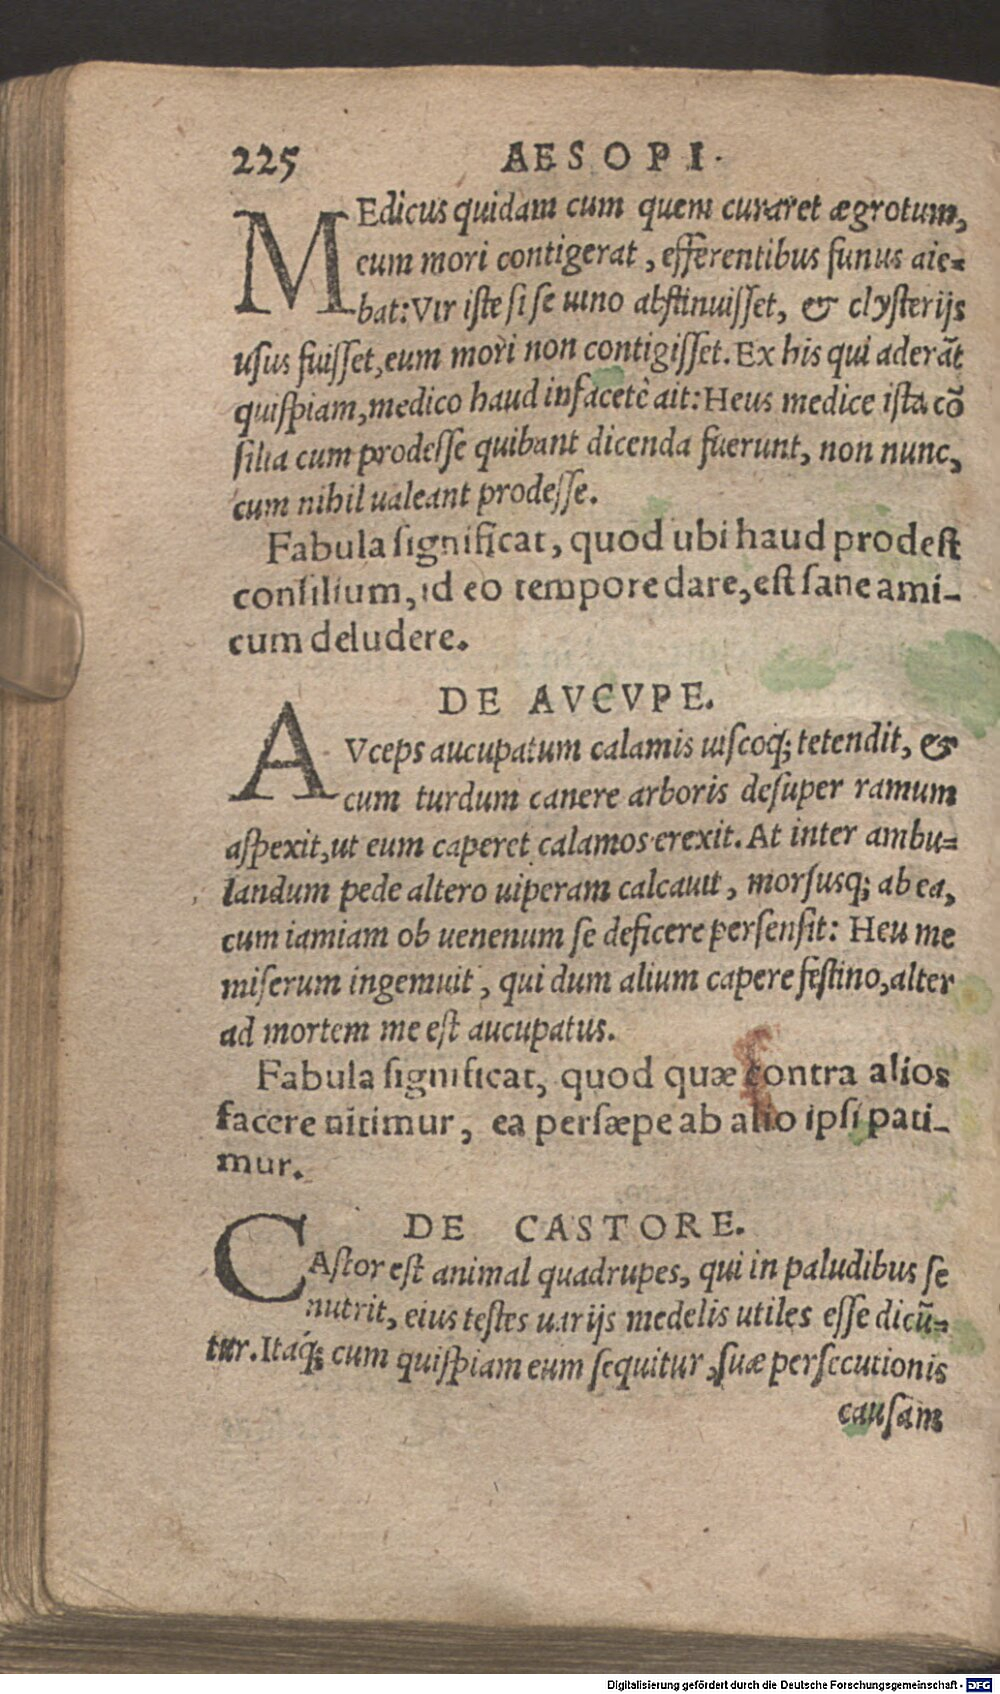 225 AESOPI.
MEdicus quidam cum quem curaret ægrotum,
eum mori contigerat, efferentibus funus aie=
bat: Vir iſte ſi ſe uino abſtinuiſſet, & clyſterijs
uſus fuiſſet, eum mori non contigiſſet. Ex his qui aderāt
quiſpiam, medico haud infacetè ait: Heus medice iſta cō
ſilia cum prodeſſe quibant dicenda fuerunt, non nunc,
cum nihil ualeant prodeſſe.
Fabula ſignificat, quod ubi haud prodeſt
conſilium, id eo tempore dare, eſt ſane ami-
cum deludere.
DE AVCVPE.
AVceps aucupatum calamis uiſcoq; tetendit, &
cum turdum canere arboris deſuper ramum
aſpexit, ut eum caperet calamos erexit. At inter ambu=
landum pede altero uiperam calcauit, morſusq; ab ea,
cum iamiam ob uenenum ſe deficere perſenſit: Heu me
miſerum ingemuit, qui dum alium capere feſtino, alter
ad mortem me eſt aucupatus.
Fabula ſignificat, quod quæ contra alios
facere nitimur, ea perſæpe ab alio ipſi pati-
mur.
DE CASTORE.
CAſtor eſt animal quadrupes, qui in paludibus ſe
nutrit, eius teſtes uarijs medelis utiles eſſe dicū=
tur. Itaq́; cum quiſpiam eum ſequitur, ſuæ perſecutionis
cauſam
Digitalisierung gefördert durch die Deutsche Forschungsgemeinschaft - DFG